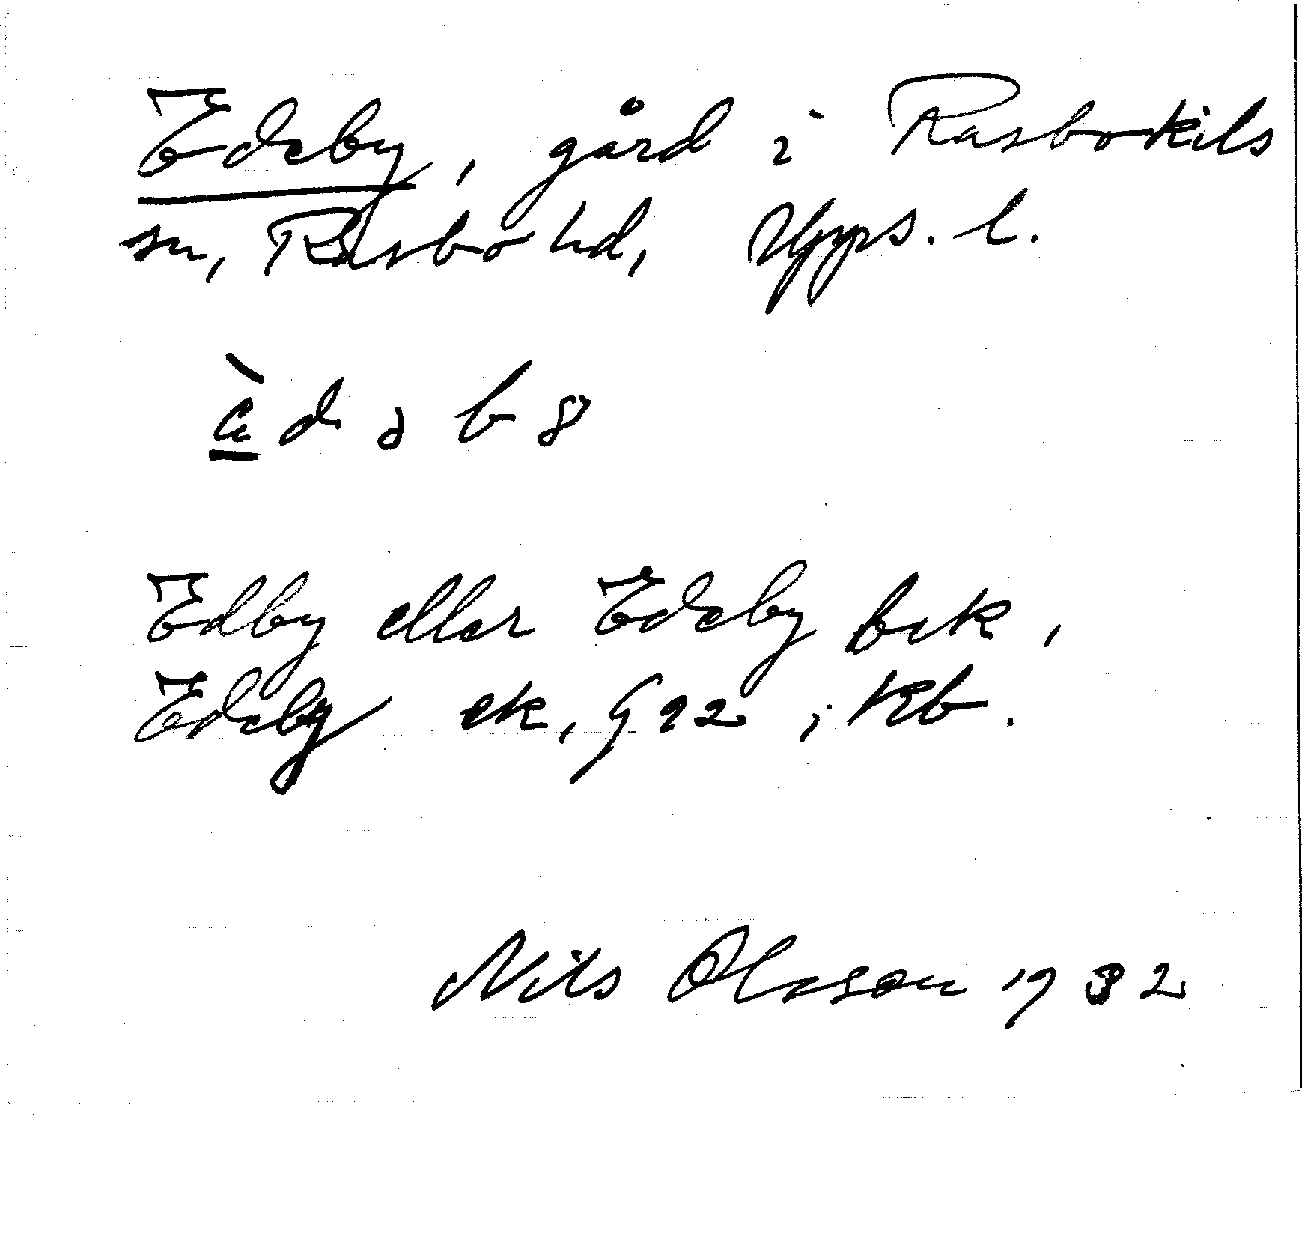 Edeby, gård i Rasbokils
sn, Rasbo hd, Upps. l.
Edby eller Edeby bek,
Edeby ek, G 22 ; Kb.
Nils Olsson 1932